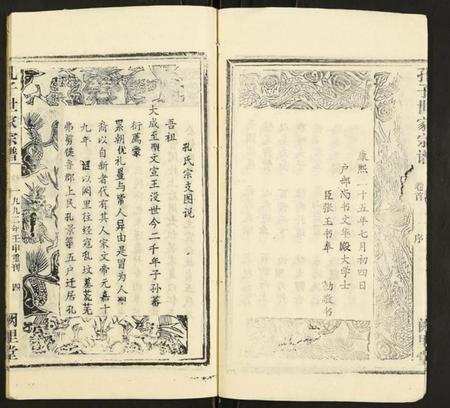 孔子世家宗谱
卷首
序
阙里堂
康熙二十五年七月初四日
户部尚书文华殿大学士
臣张玉书奉
勅敬书
孔氏宗支图说
吾祖
大成至聖文宣王没世今二千年子孙蕃
衍萬
累朝优礼與常人异由是冒为人
裔以自新者代有其人宋文帝元嘉十
九年 诏以阙里往经寇乱坟墓荒芜
弗剪鲁郡上民孔景等五户迁居孔
孔子世家宗谱
一九九二年壬申重刊
四
阙里堂